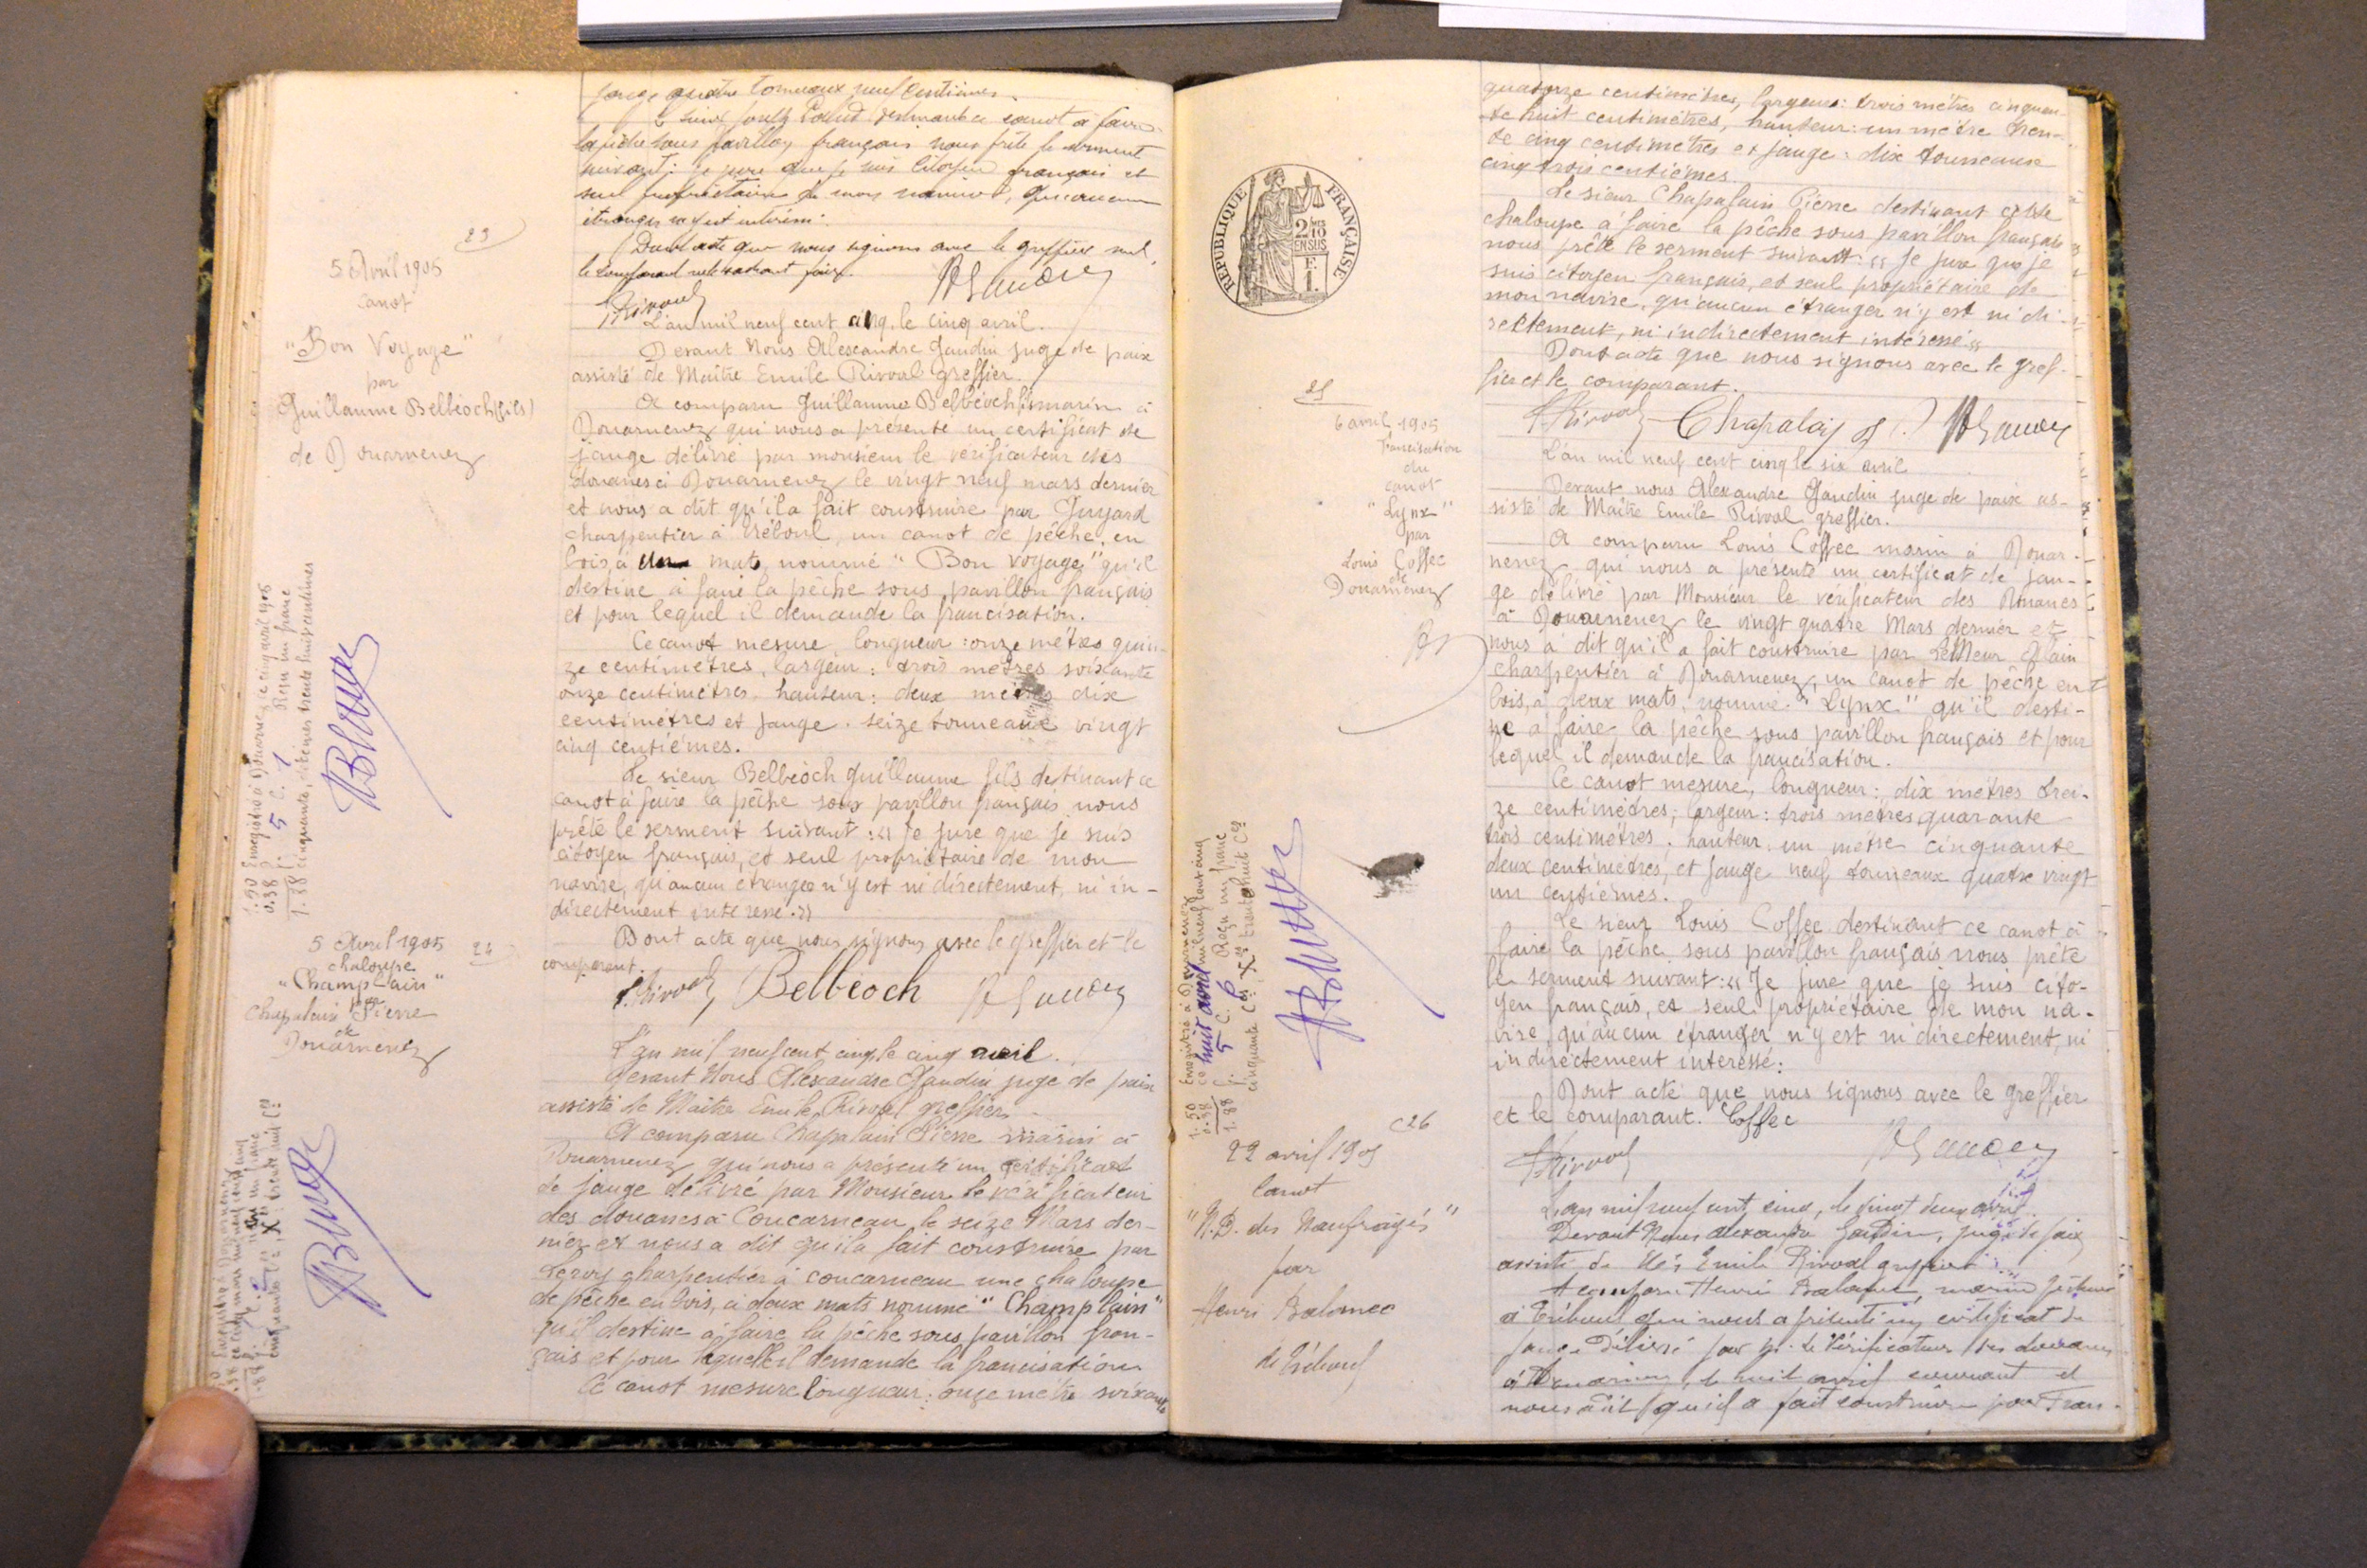 jauge quatre tonneaux neuf centièmes.
Le sieur destinant ce canot à faire
la pêche sous pavillon français nous prête le serment
suivant: je jure que je suis citoyen français et
seul propriétaire de mon navire, qu'aucun
étranger n'y est intéressé.
Dont acte que nous signons avec le greffier seul,
le comparant ne le sachant faire.
Rivoal
23
5 Avril 1905
canot
"Bon Voyage"
par
Guillaume Belbéoch (fils)
de Douarnenez
L'an mil neuf cent cinq, le cinq avril.
Devant Nous Alexandre Gaudin juge de paix
assisté de Maître Emile Rivoal greffier.
A comparu Guillaume Belbéoch fils marin à
Douarnenez qui nous a présenté un certificat de
jauge délivré par monsieur le vérificateur des
douanes à Douarnenez le vingt neuf mars dernier
et nous a dit qu'il a fait construire par Guyard
charpentier à Tréboul, un canot de pêche, en
bois, à un mats, nommé "Bon Voyage" qu'il
destine à faire la pêche sous pavillon français
et pour lequel il demande la francisation.
Ce canot mesure, longueur: onze mètres quin-
ze centimètres, largeur: trois mètres soixante
onze centimètres, hauteur: deux mètres dix
centimètres et jauge: seize tonneaux vingt
cinq centièmes.
Le sieur Belbéoch Guillaume fils destinant ce
canot à faire la pêche sous pavillon français nous
prête le serment suivant: « Je jure que je suis
citoyen français, et seul propriétaire de mon
navire, qu'aucun étranger n'y est ni directement, ni in-
directement intéressé. »
Dont acte que nous signons avec le greffier et le
comparant.
Rivoal Belbéoch
1.50 Enregistré à Douarnenez le cinq avril 1905
0.38 5 C. 1 Reçu un franc
1.88 cinquante, décimes trente huit centimes
24
5 Avril 1905
chaloupe
"Champlain"
par
Chapalain Pierre
de
Douarnenez
L'an mil neuf cent cinq, le cinq avril.
Devant Nous Alexandre Gaudin juge de paix
assisté de Maître Emile Rivoal greffier.
A comparu Chapalain Pierre marin à
Douarnenez qui nous a présenté un certificat
de jauge délivré par Monsieur le vérificateur
des douanes à Concarneau le seize Mars der-
nier et nous a dit qu'il a fait construire par
Leroy charpentier à Concarneau une chaloupe
de pêche en bois, à deux mats nommé "Champlain"
qu'il destine à faire la pêche sous pavillon fran-
çais et pour laquelle il demande la francisation
Ce canot mesure longueur: onze mètre soixante
quatorze centimètres, largeur: trois mètres cinquan-
te huit centimètres, hauteur: un mètre tren-
te cinq centimètres et jauge: dix tonneaux
cinq trois centièmes.
Le sieur Chapalain Pierre destinant cette
chaloupe à faire la pêche sous pavillon français
nous prête le serment suivant: « Je jure que je
suis citoyen français, et seul propriétaire de
mon navire, qu'aucun étranger n'y est ni di-
rectement, ni indirectement intéressé. »
Dont acte que nous signons avec le gref-
fier et le comparant.
Rivoal Chapalain
REPUBLIQUE FRANÇAISE
2/10 EN SUS
F.
1.
25
6 avril 1905
Francisation
du
canot
"Lynx"
par
Louis Coffec
de
Douarnenez
L'an mil neuf cent cinq le six avril
Devant nous Alexandre Gaudin juge de paix as-
sisté de Maître Emile Rivoal greffier.
A comparu Louis Coffec marin à Douar-
nenez qui nous a présenté un certificat de jau-
ge délivré par Monsieur le vérificateur des Douanes
à Douarnenez le vingt quatre Mars dernier et
nous a dit qu'il a fait construire par Alain
charpentier à Douarnenez, un canot de pêche en
bois, à deux mats, nommé "Lynx" qu'il desti-
ne à faire la pêche sous pavillon français et pour
lequel il demande la francisation.
Ce canot mesure, longueur: dix mètres trei-
ze centimètres; largeur: trois mètres quarante
trois centimètres. hauteur: un mètre cinquante
deux centimètres, et jauge neuf tonneaux quatre vingt
un centièmes.
Le sieur Louis Coffec destinant ce canot à
faire la pêche sous pavillon français nous prête
le serment suivant: « Je jure que je suis cito-
yen français, et seul propriétaire de mon na-
vire, qu'aucun étranger n'y est ni directement, ni
indirectement intéressé:
Dont acte que nous signons avec le greffier
et le comparant. Coffec
Rivoal
1.50 Enregistré à Douarnenez
0.38 ce huit avril mil neuf cent cinq
1.88 f. 5 C. 6 Reçu un franc
cinquante Ces, Xes trente huit Ces
26
22 avril 1905
Canot
"N.D. des Naufragés"
par
Henri Balanec
de Tréboul
L'an mil neuf cent cinq, le vingt deux avril.
Devant Nous Alexandre Gaudin, juge de paix
assisté de Me Emile Rivoal greffier
A comparu Henri Balanec, marin pêcheur
à Tréboul qui nous a présenté un certificat de
jauge délivré par Mr le Vérificateur des douanes
à Douarnenez, le huit avril courant et
nous a dit qu'il a fait construire par Fran-